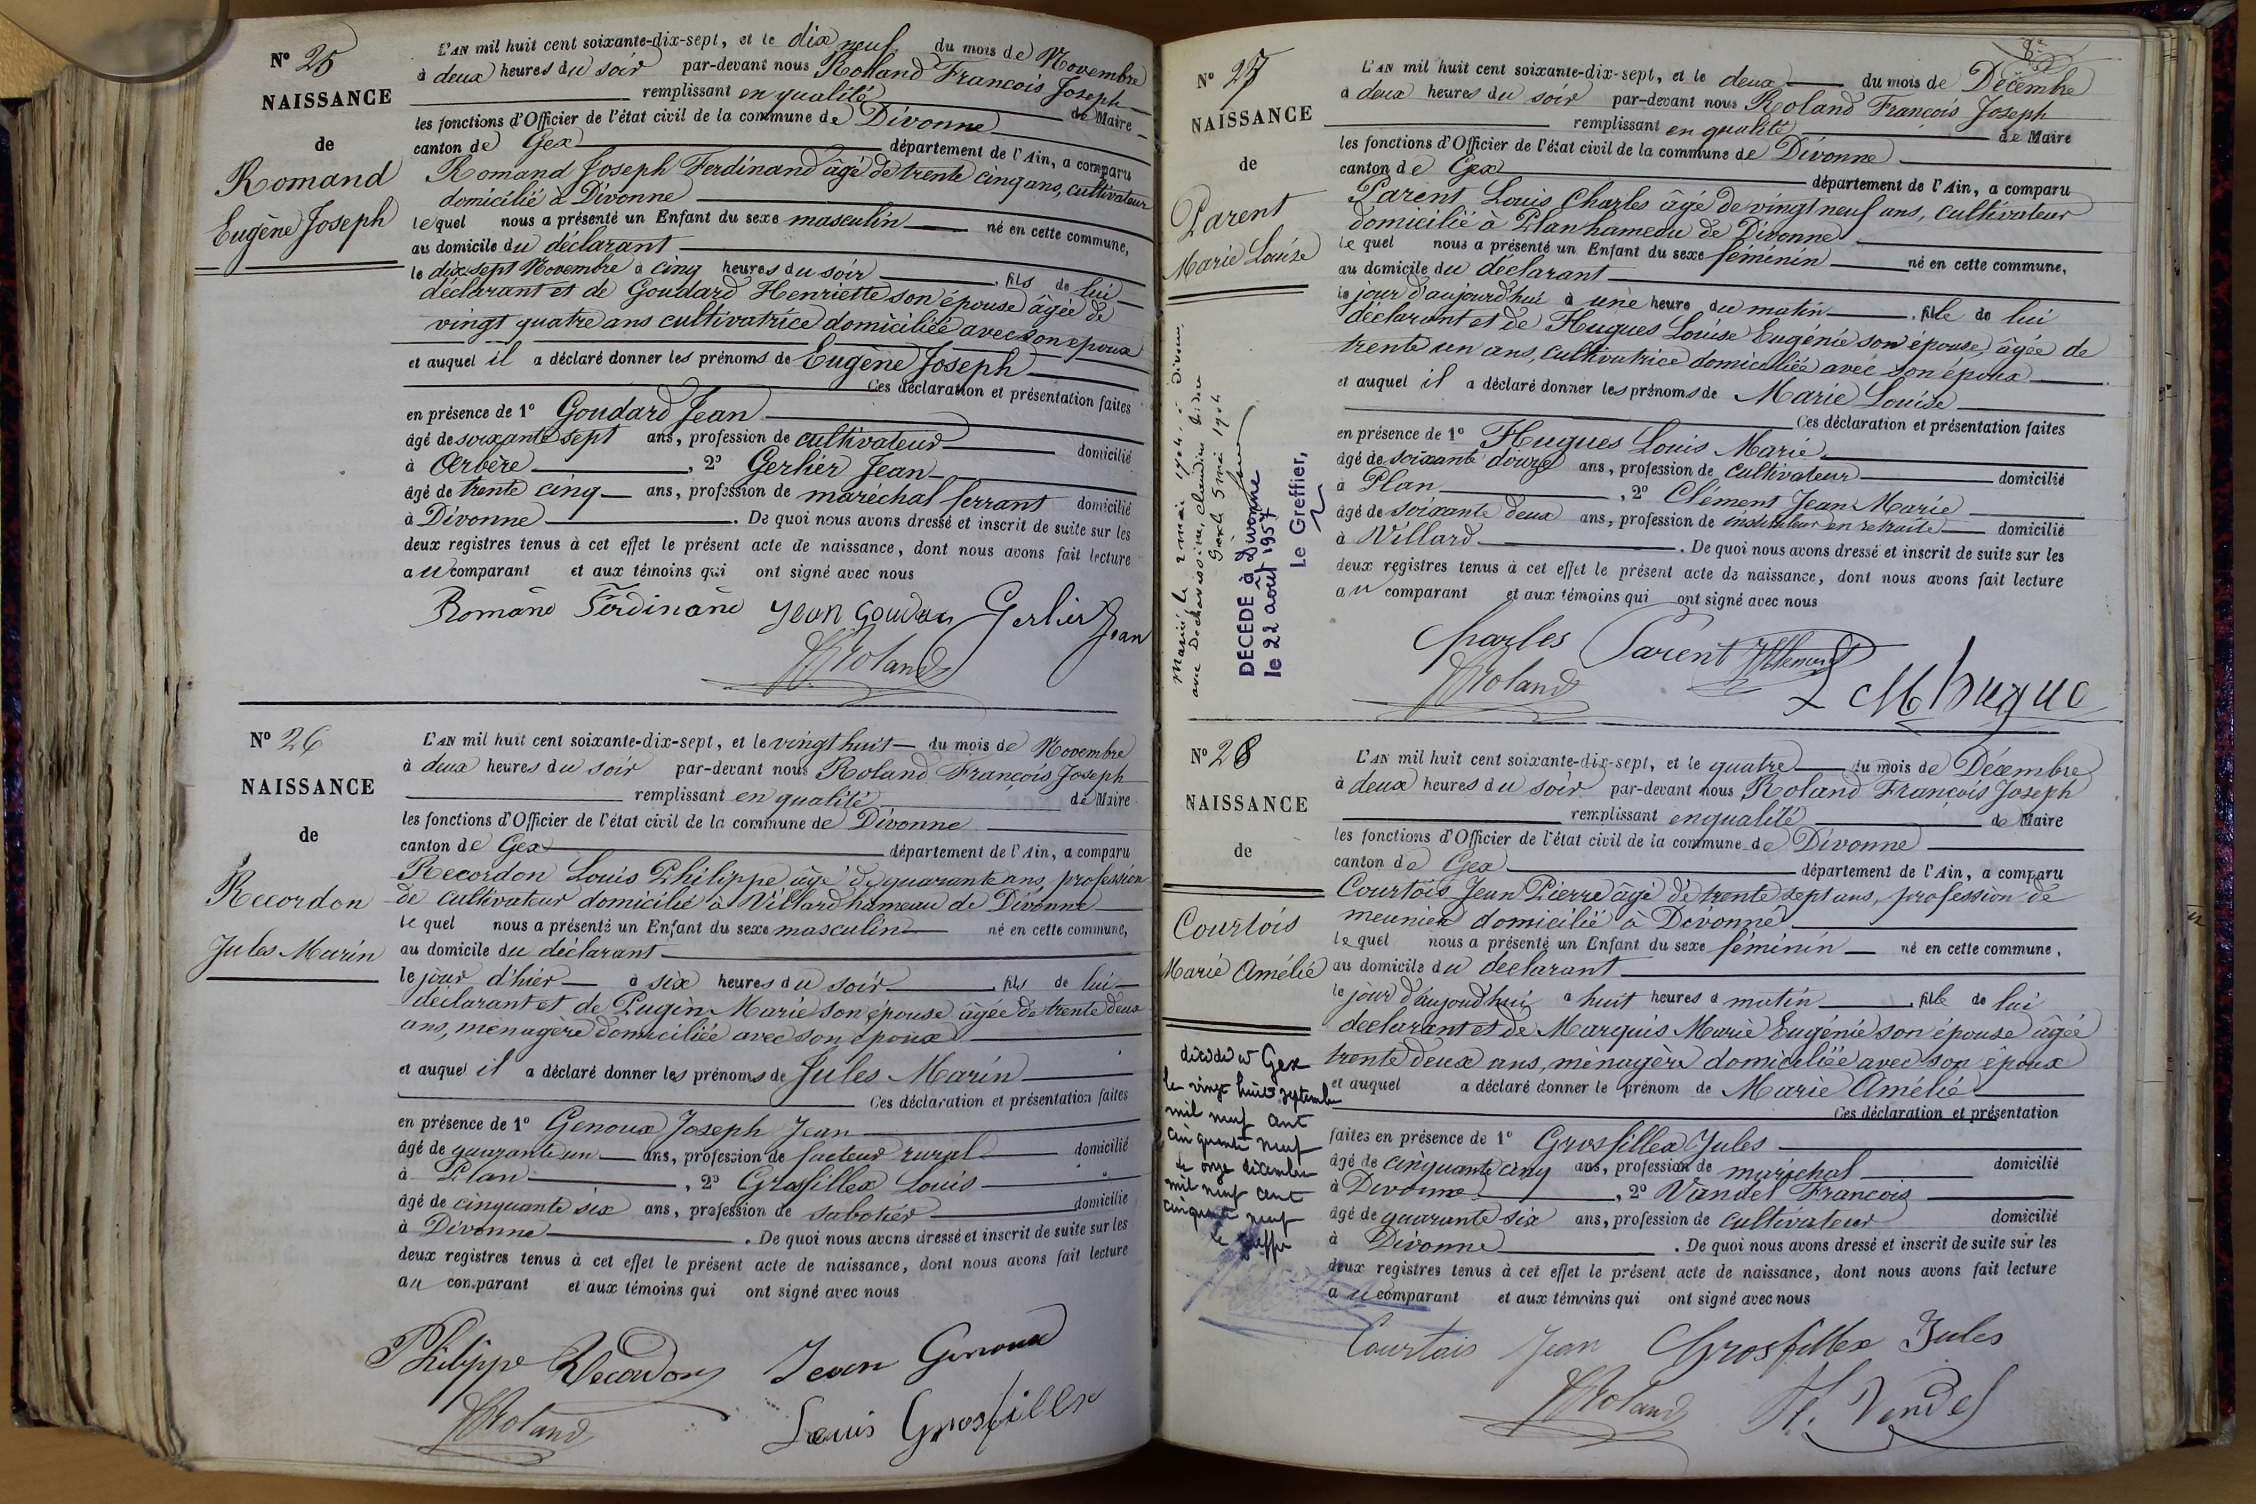 N° 25
NAISSANCE
de
Romand
Eugène Joseph
L'AN mil huit cent soixante-dix-sept, et le dix neuf du mois de Novembre
à deux heures du soir par-devant nous Rolland François Joseph
remplissant en qualité de Maire
les fonctions d'Officier de l'état civil de la commune de Divonne
canton de Gex département de l'Ain, a comparu
Romand Joseph Ferdinand âgé de trente cinq ans, cultivateur
domicilié à Divonne
lequel nous a présenté un Enfant du sexe masculin né en cette commune,
au domicile du déclarant
le dix sept Novembre à cinq heures du soir, fils de lui
déclarant et de Goudard Henriette son épouse âgée de
vingt quatre ans cultivatrice domiciliée avec son epoux
et auquel il a déclaré donner les prénoms de Eugène Joseph
Ces déclaration et présentation faites
en présence de 1° Goudard Jean
âgé de soixante sept ans, profession de cultivateur domicilié
à Arbère, 2° Gerlier Jean
âgé de trente cinq ans, profession de maréchal ferrant domicilié
à Divonne. De quoi nous avons dressé et inscrit de suite sur les
deux registres tenus à cet effet le présent acte de naissance, dont nous avons fait lecture
au comparant et aux témoins qui ont signé avec nous
Romand Ferdinand Jean Goudard Gerlier Jean
Roland
N° 26
NAISSANCE
de
Recordon
Jules Marin
L'AN mil huit cent soixante-dix-sept, et le vingt huit du mois de Novembre
à deux heures du soir par-devant nous Roland François Joseph
remplissant en qualité de Maire
les fonctions d'Officier de l'état civil de la commune de Divonne
canton de Gex département de l'Ain, a comparu
Recordon Louis Philippe âgé de quarante ans, profession
de cultivateur domicilié à Villard hameau de Divonne
lequel nous a présenté un Enfant du sexe masculin né en cette commune,
au domicile du déclarant
le jour d'hier à six heures du soir, fils de lui
déclarant et de Pugin Marie son épouse âgée de trente deux
ans, ménagère domiciliée avec son époux
et auquel il a déclaré donner les prénoms de Jules Marin
Ces déclaration et présentation faites
en présence de 1° Genoux Joseph Jean
âgé de quarante un ans, profession de facteur rural domicilié
à Plan, 2° Grosfillex Louis
âgé de cinquante six ans, profession de sabotier domicilié
à Divonne. De quoi nous avons dressé et inscrit de suite sur les
deux registres tenus à cet effet le présent acte de naissance, dont nous avons fait lecture
au comparant et aux témoins qui ont signé avec nous
Philippe Recordon Jean Genoux
Roland Louis Grosfillex
N° 27
NAISSANCE
de
Parent
Marie Louise
Mariée le 2 mai 1904 à Divonne
avec Dechavassine, Claudius Isidore
Gex le 5 mai 1904
DECEDE à Divonne
le 22 août 1957
Le Greffier,
L'AN mil huit cent soixante-dix-sept, et le deux du mois de Décembre
à deux heures du soir par-devant nous Roland François Joseph
remplissant en qualité de Maire
les fonctions d'Officier de l'état civil de la commune de Divonne
canton de Gex département de l'Ain, a comparu
Parent Louis Charles âgé de vingt neuf ans, cultivateur
domicilié à Plan hameau de Divonne
lequel nous a présenté un Enfant du sexe féminin né en cette commune,
au domicile du déclarant
le jour d'aujourd'hui à une heure du matin, fille de lui
déclarant et de Hugues Louise Eugénie son épouse, âgée de
trente un ans, cultivatrice domiciliée avec son époux
et auquel il a déclaré donner les prénoms de Marie Louise
Ces déclaration et présentation faites
en présence de 1° Hugues Louis Marie
âgé de soixante douze ans, profession de cultivateur domicilié
à Plan, 2° Clément Jean Marie
âgé de soixante deux ans, profession de instituteur en retraite domicilié
à Villard. De quoi nous avons dressé et inscrit de suite sur les
deux registres tenus à cet effet le présent acte de naissance, dont nous avons fait lecture
au comparant et aux témoins qui ont signé avec nous
Charles Parent Clément
Roland L M hugue
N° 28
NAISSANCE
de
Courtois
Marie Amélie
décédée à Gex
le vingt huit septembre
mil neuf cent
cinquante neuf
le onze décembre
mil neuf cent
cinquante neuf
le greffier
L'AN mil huit cent soixante-dix-sept, et le quatre du mois de Décembre
à deux heures du soir par-devant nous Roland François Joseph
remplissant en qualité de Maire
les fonctions d'Officier de l'état civil de la commune de Divonne
canton de Gex département de l'Ain, a comparu
Courtois Jean Pierre âgé de trente sept ans, profession de
meunier domicilié à Divonne
lequel nous a présenté un Enfant du sexe féminin né en cette commune,
au domicile du déclarant
le jour d'aujourd'hui à huit heures d matin, fille de lui
déclarant et de Marquis Marie Eugénie son épouse âgée
trente deux ans, ménagère domiciliée avec son époux
et auquel a déclaré donner le prénom de Marie Amélie
Ces déclaration et présentation
faites en présence de 1° Grosfillex Jules
âgé de cinquante cinq ans, profession de maréchal domicilié
à Divonne, 2° Vandel François
âgé de quarante six ans, profession de cultivateur domicilié
à Divonne. De quoi nous avons dressé et inscrit de suite sur les
deux registres tenus à cet effet le présent acte de naissance, dont nous avons fait lecture
au comparant et aux témoins qui ont signé avec nous
Courtois Jean Grosfillex Jules
Roland F. Vendel